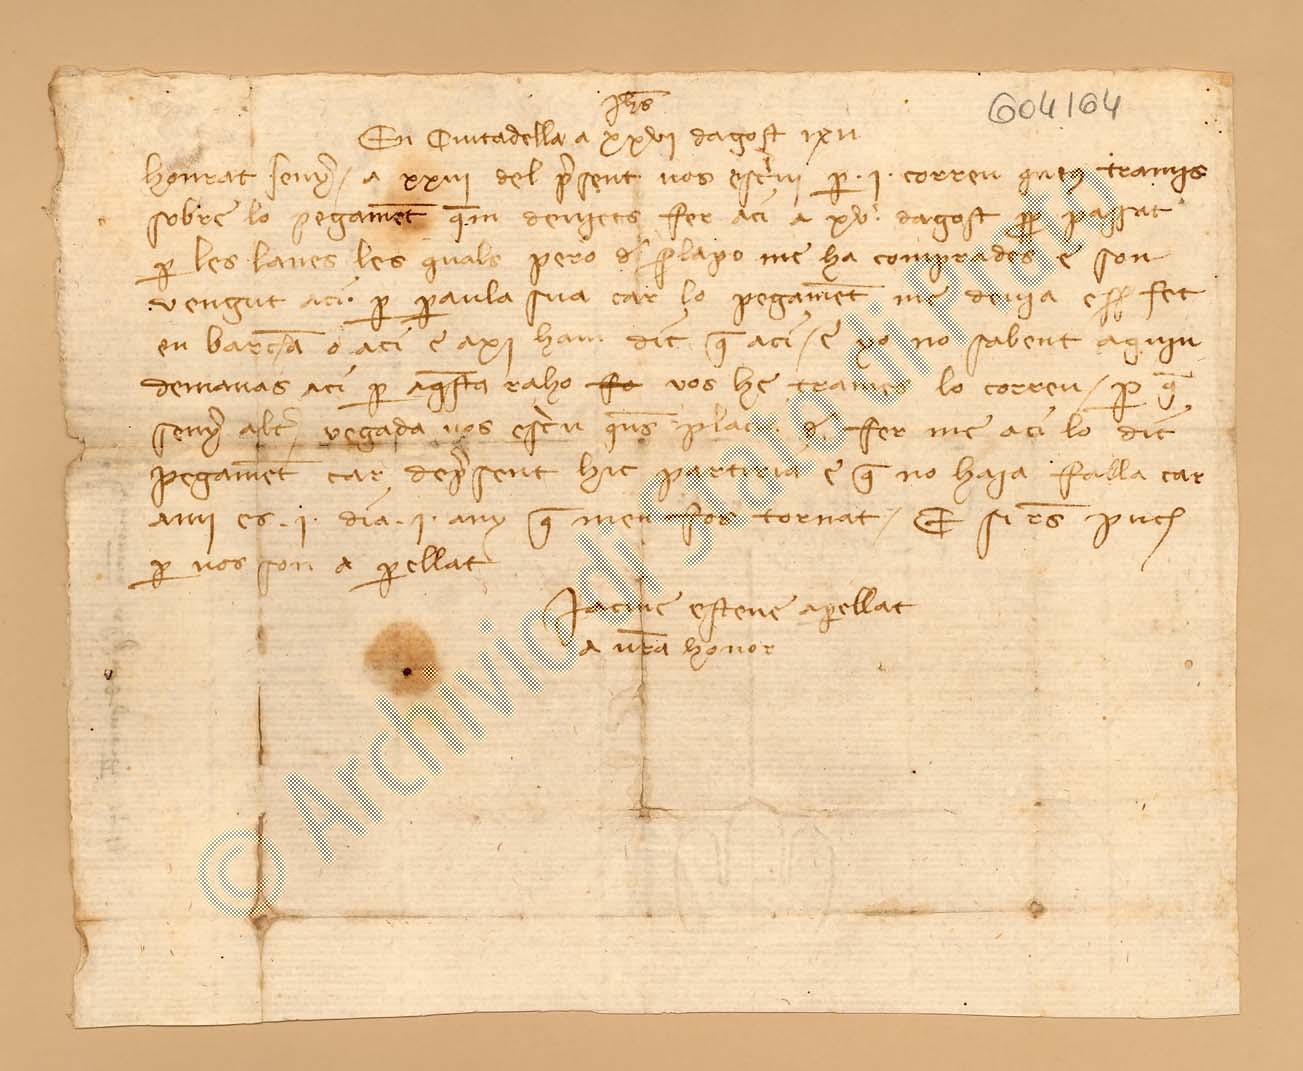 Jhs
604164
En Ciutadella a xxvi dagost
honrat senyer / a xxiii del present vos escrivi per .i. correu queus trames
sobre lo pegament quem deviets fer aci a xv dagost prop passat
per les lanes les quals pero de prlapo me ha comprades e son
vengut aci per paraula sua car lo pegament me devia esser fet
en barcna o aci e axi ham dit q aci / e yo no sabent aquin
demanas aci per aqsta raho fo vos he trames lo correu / per q
senyer altra vegada vos escriu quus placia de fer me aci lo dit
pegament car depresent hic partiria e q no haja falla car
ami es .i. dia .i. any q men fos tornat / E si res puch
per vos son a perellat
Jacme esteve aperellat
a vra honor
© Archivio di Stato di Prato